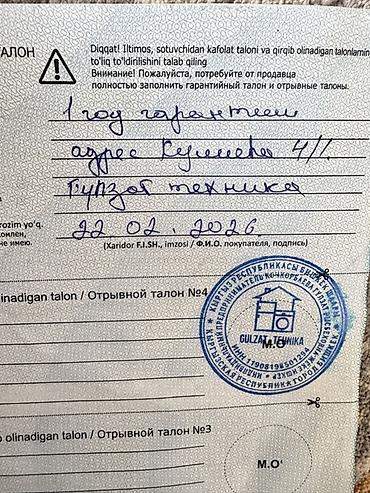 ТАЛОН
Diqqat! Iltimos, sotuvchidan kafolat taloni va qirqib olinadigan talonlarning
to'liq to'ldirilishini talab qiling
Внимание! Пожалуйста, потребуйте от продавца
полностью заполнить гарантийный талон и отрывные талоны.
1 год гарантии
адрес Кулиева 4/1
Гулзат техника
rozim yo'q.
22 02. 2026
не имею.
(Xaridor F.I.SH., imzosi / Ф.И.О. покупателя, подпись)
inadigan talon / Отрывной талон №4
КЫРГЫЗ РЕСПУБЛИКАСЫ БИШКЕК ШААРЫ
GULZAT TEHNIKA
М.О'
КЫРГЫЗСКАЯ РЕСПУБЛИКА ГОРОД БИШКЕК
olinadigan talon / Отрывной талон №3
М.О'